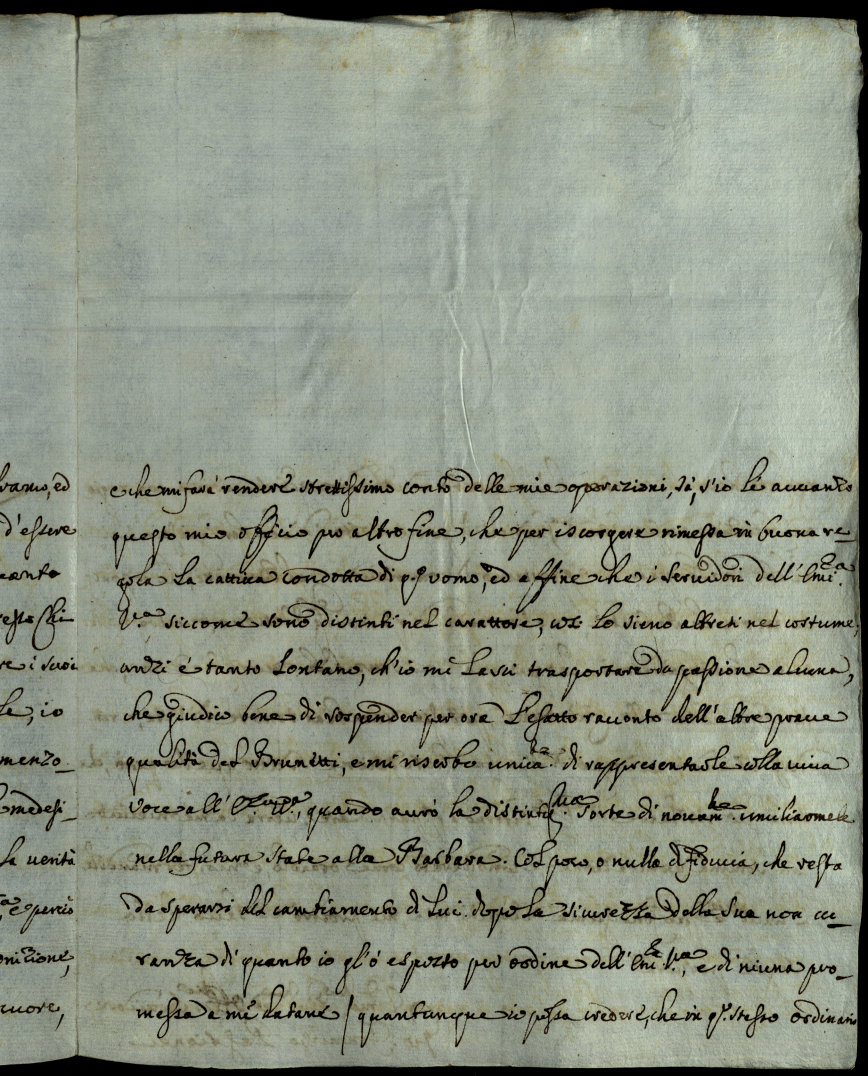 uamo, ed
d'essere
uanto
re i suoi
le; io
menzo_
medesi_
la uerità
è perciò
nizione,
uore,
e che mi farà rendere strettissimo conto delle mie operazioni, s'io le auuanzo
questo mio officio per altro fine, che per iscorgere rimessa in buona re_
gola la cattiua condotta di q.o uomo, ed affine che i Seruidori dell' Em.a
V.ra siccome sono distinti nel carattere, così lo sieno altresì nel costume.
anzi è tanto lontano, ch'io mi lasci trasportare da passione alcuna,
che giudico bene di sospender per ora l'esatto racconto dell'altre praue
qualità del Brunetti, e mi riserbo unicam.te di rappresentarle colla uiua
uoce all' E. V.ra, quando aurò la distintiss.ma Sorte di nouam.te umiliarmele
nella futura State alla Barbara. Col poco, o nulla di fiducia, che resta
da sperarsi del cambiamento di Lui dopo la sicurezza della Sua non cu_
ranza di quanto io gl'ò esposto per ordine dell' Em.a V.ra, e di niuna pro_
messa a me fatane / quantunque io possa credere, che in q.o stesso ordinario